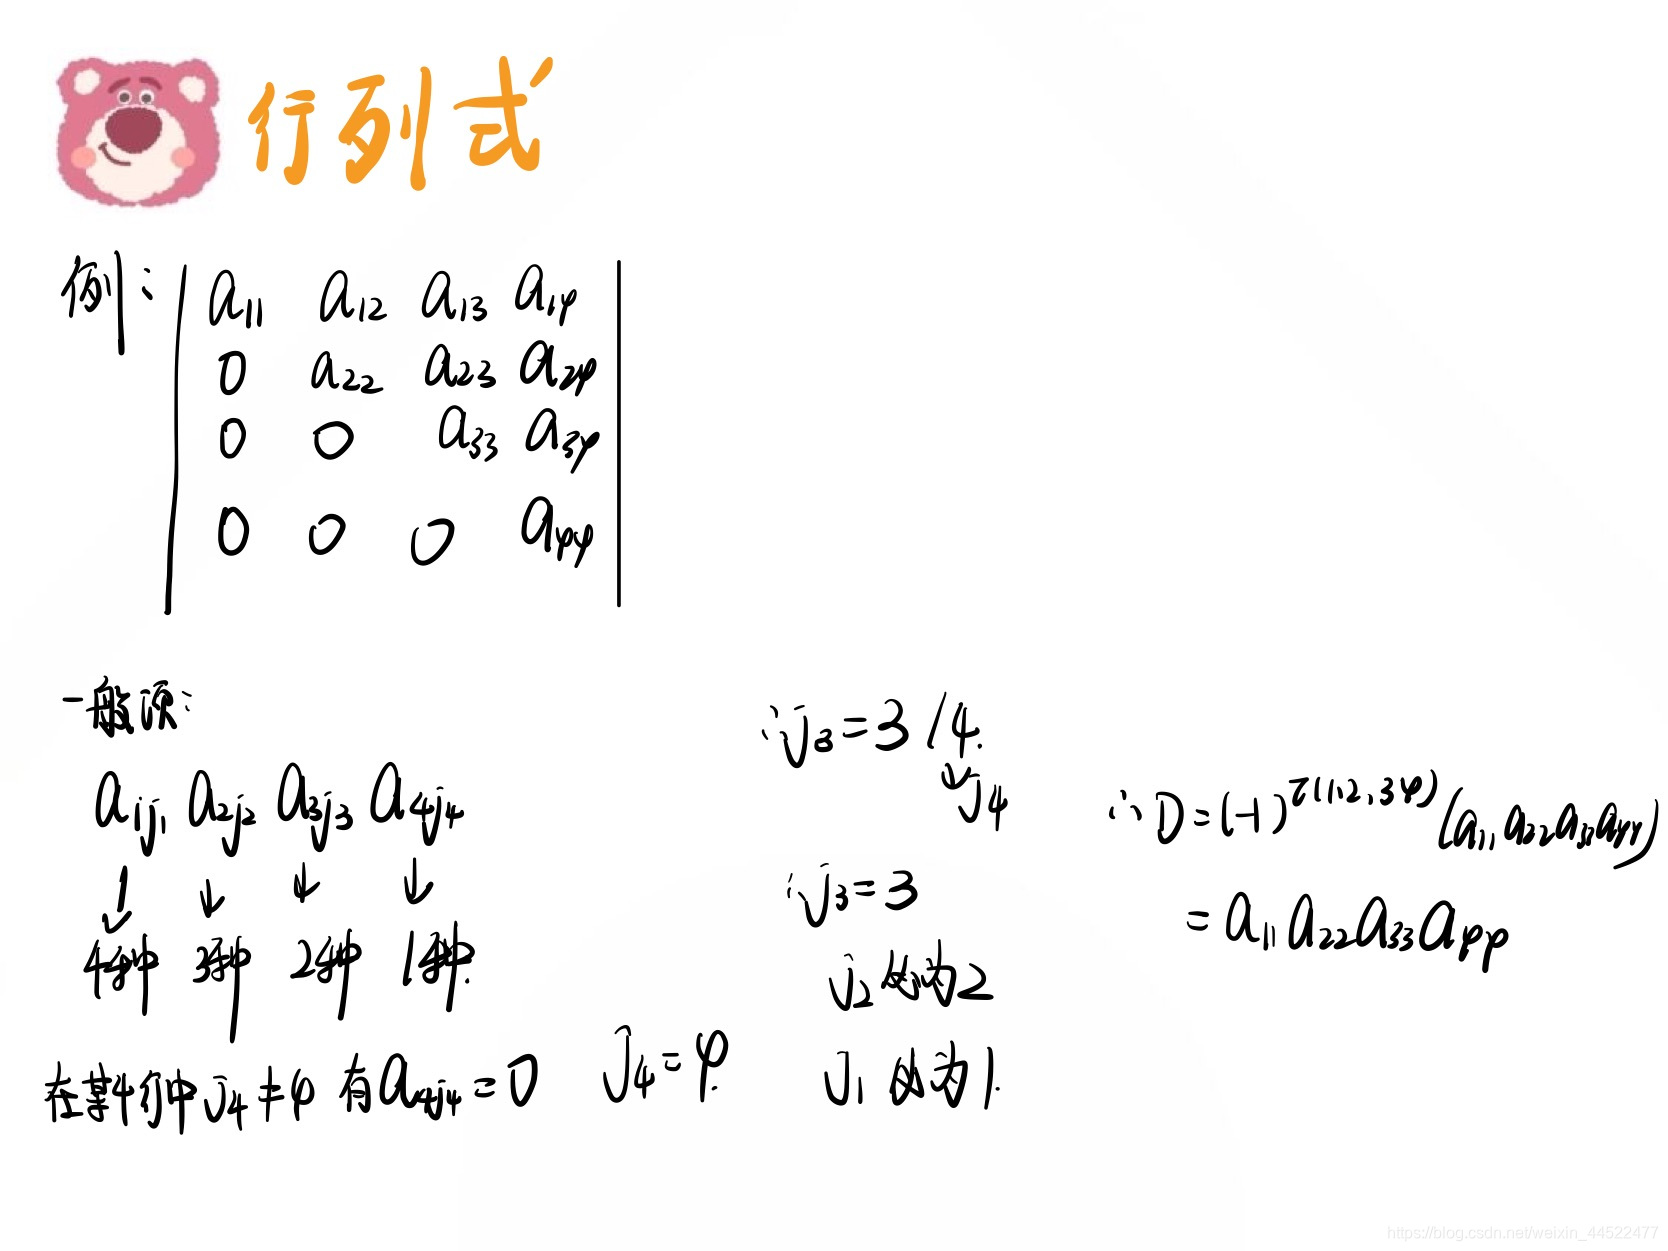 行列式
例: | a₁₁ a₁₂ a₁₃ a₁₄ |
| 0 a₂₂ a₂₃ a₂₄ |
| 0 0 a₃₃ a₃₄ |
| 0 0 0 a₄₄ |
一般项:
a₁j₁ a₂j₂ a₃j₃ a₄j₄
↓ ↓ ↓ ↓
4种 3种 2种 1种.
在某4行中 j₄ ≠ 4 有 a₄j₄ = 0 j₄ = 4.
∵ j₃ = 3 / 4.
↓ j₄
∴ j₃ = 3
j₂ 必为 2
j₁ 必为 1.
∴ D = (-1)^τ(1,2,3 4) (a₁₁ a₂₂ a₃₃ a₄₄)
= a₁₁ a₂₂ a₃₃ a₄₄
https://blog.csdn.net/weixin_44522477